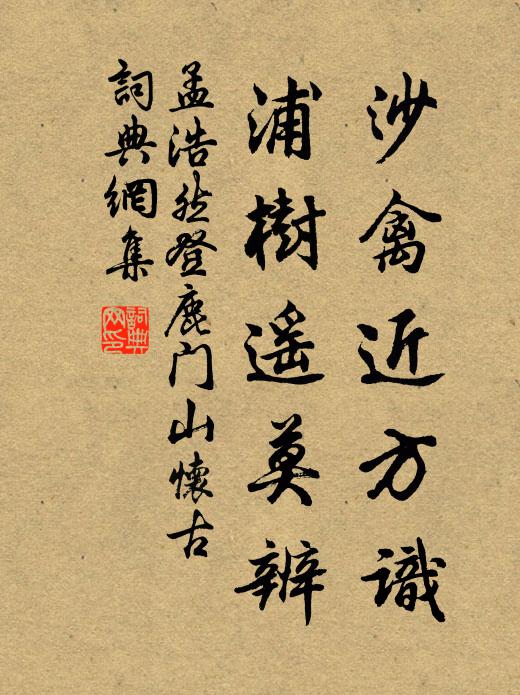 沙禽近方識
浦樹遥莫辨
孟浩然登鹿门山懷古
詞典網集
詞典
网印